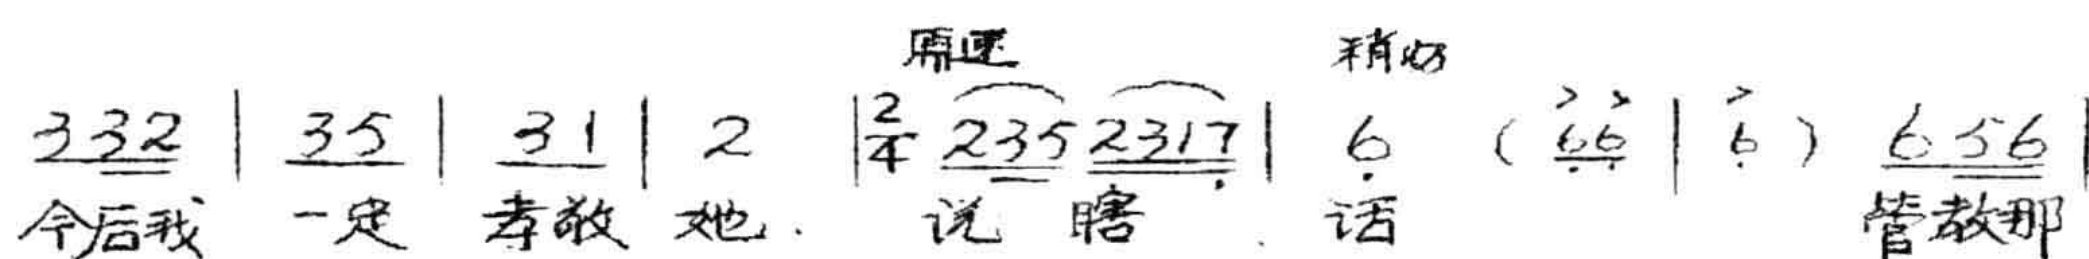 原速 稍快
3 3 2 | 3 5 | 3 1 | 2 | 2/4 2 3 5 2 3 1 7 | 6 ( 6 6 | 6 ) 6 5 6 |
今后我 一定 孝敬 她. 说 瞎 . 话 管教那